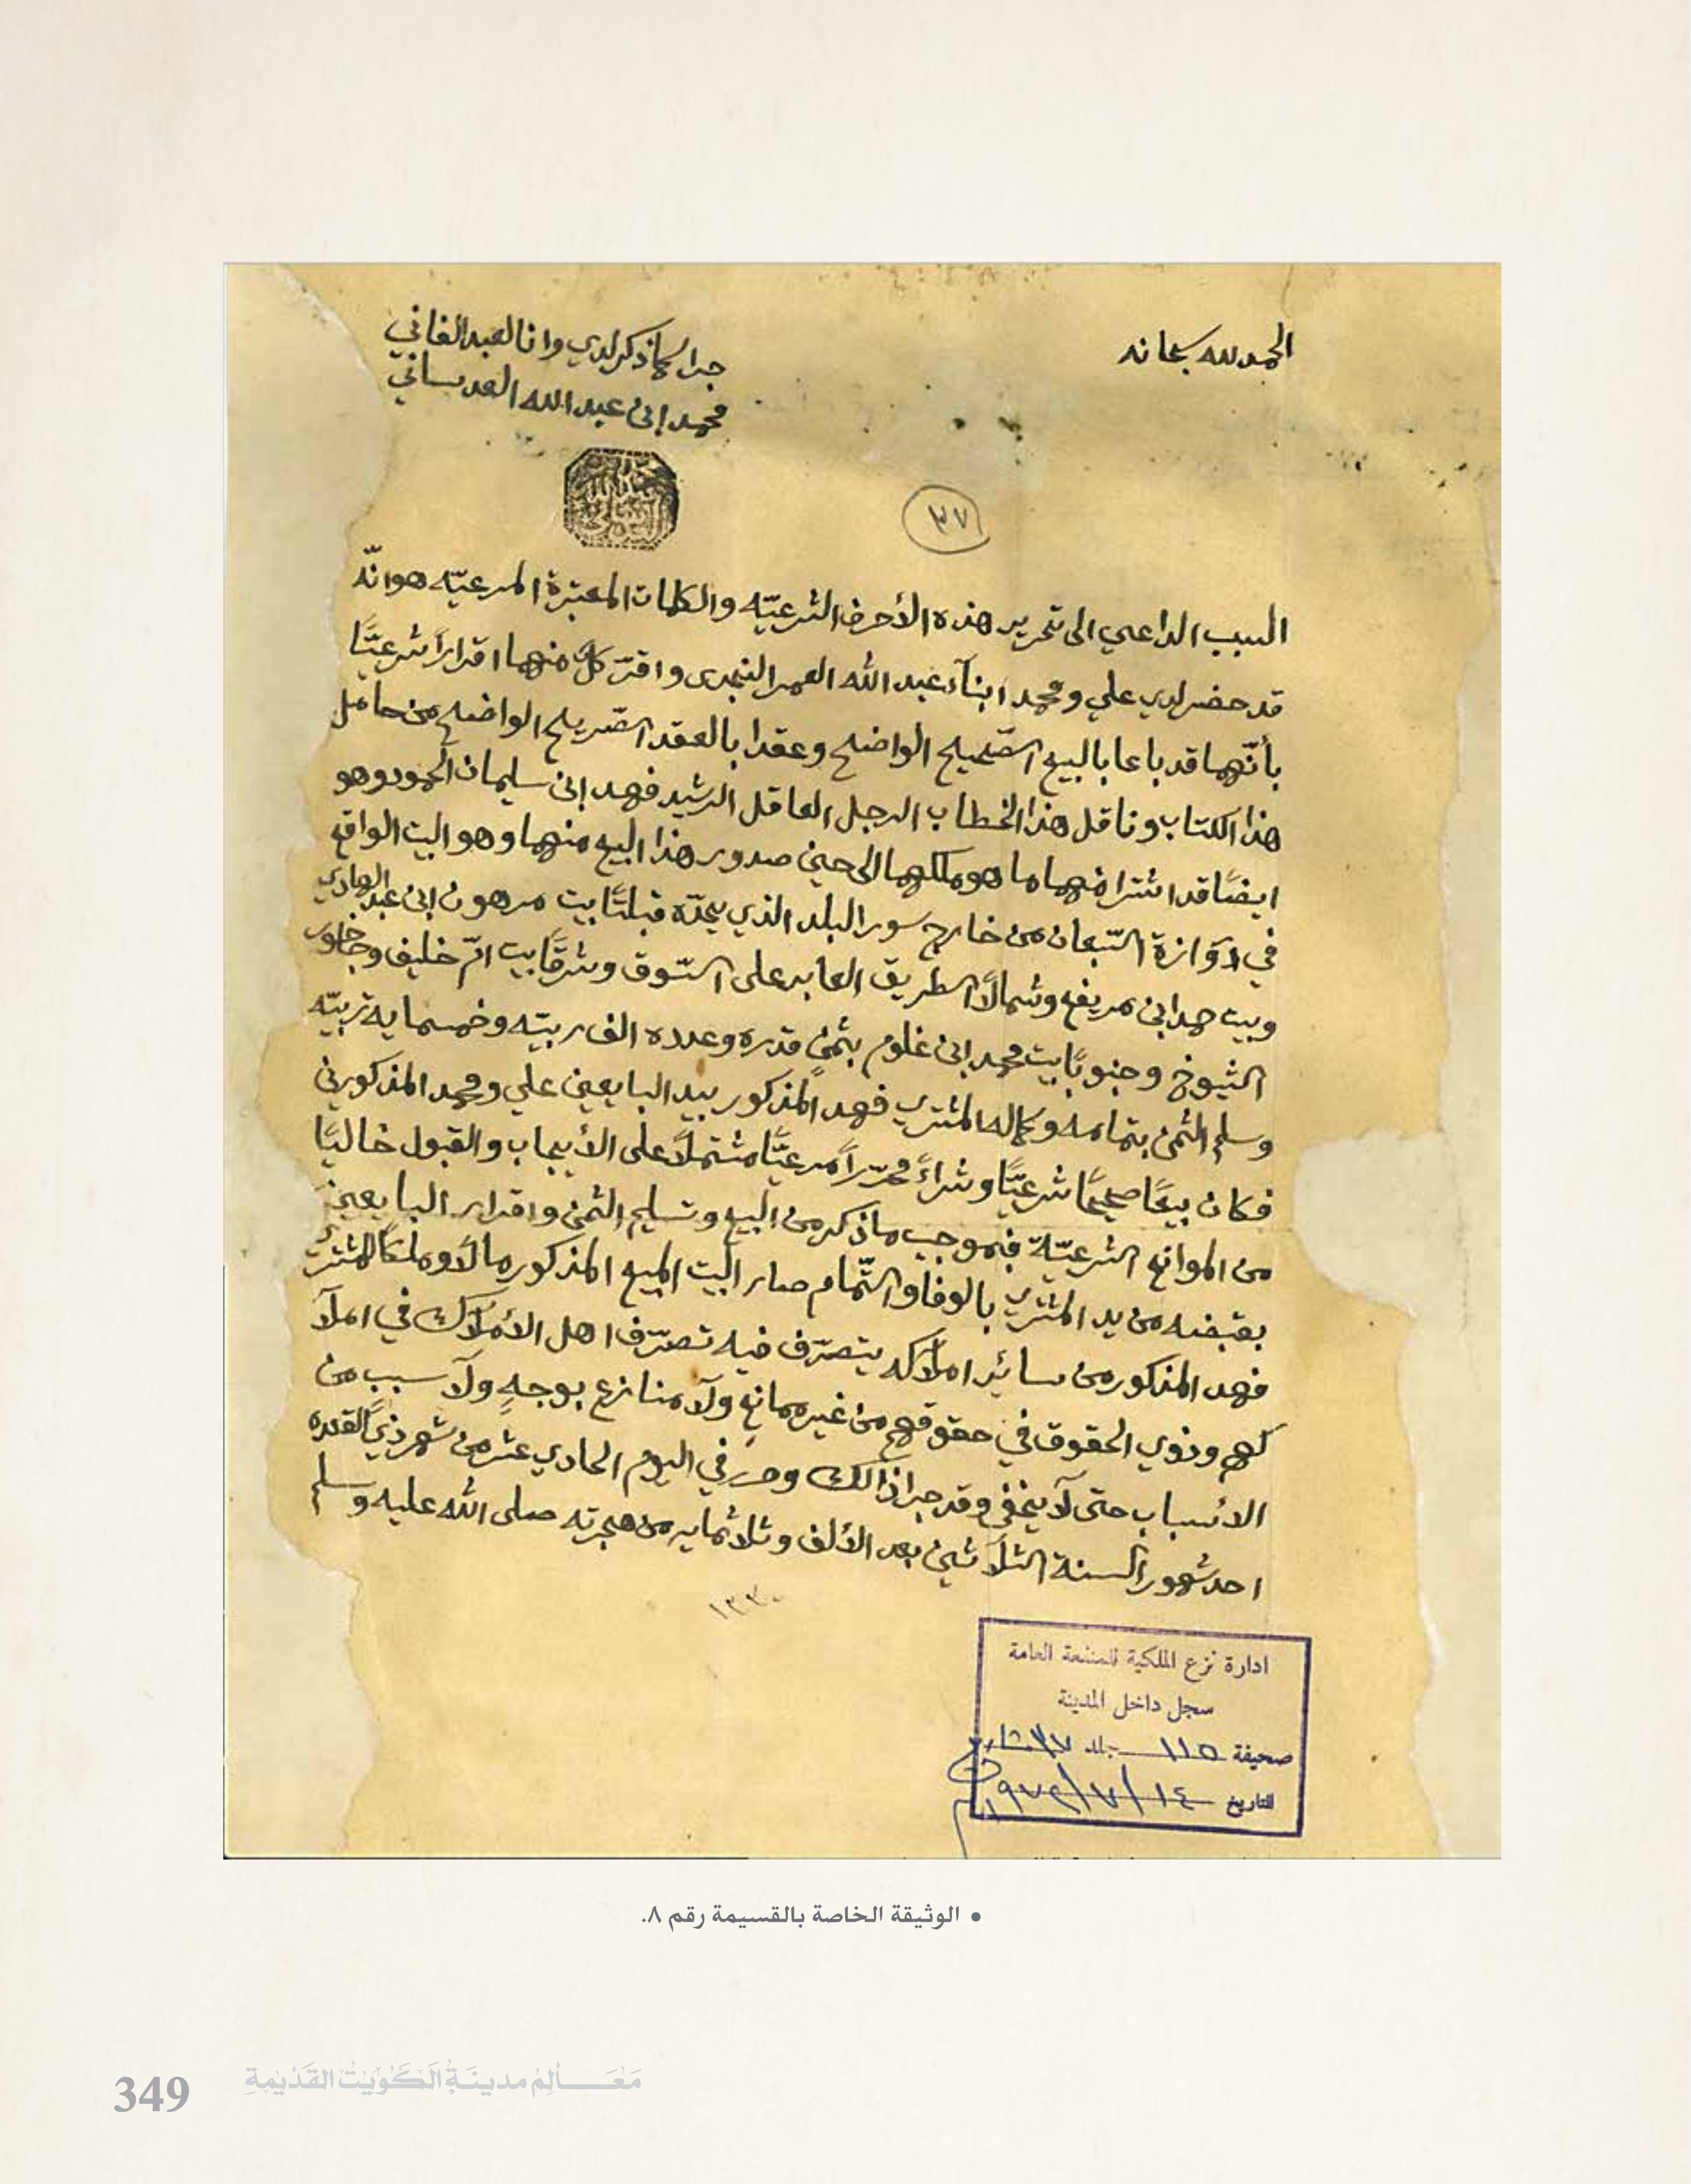 الحمد لله سبحانه
جرا كماذكر لدي وانا العبد الفاني
محمد ابن عبد الله العدساني
٣٧
السبب الداعي الى تحرير هذه الأحرف الشرعيّه والكلمات المعتبرة المرعيّه هو انّه
قد حضر لدي علي ومحمد ابنآء عبد الله العمر النجدى واقرّ كلٌ منهما اقراراً شرعيًّا
بأنّهما قد باعا بالبيع الصّحيح الواضح وعقدا بالعقد الصّريح الواضح من حامل
هذا الكتاب وناقل هذا الخطاب الرجل العاقل الرشيد فهد ابن سليمان الحمود وهو
ايضًا قد اشترا منهما ما هو ملكهما الى حين صدور هذا البيع منهما وهو البيت الواقع
في دوّازة السّبعان من خارج سور البلد الذي يحدّه قبلتًا بيت مرهون ابن عبد الهادي
وبيت حمد ابن مريفع وشمالًا الطريق العابر على السّوق وشرقًا بيت امّ خليف وخاخور
الشيوخ وجنوبًا بيت محمد ابن غلوم بثمنٍ قدره وعدده الف ربيّه وخمسمايه ربيّه
وسلم الثمن بتمامه وكماله المشتري فهد المذكور بيد البايعين علي ومحمد المذكورين
فكان بيعًا صحيحًا شرعيًّا وشراءً محرّراً مرعيًّا مشتملًا على الأيجاب والقبول خاليًا
من الموانع الشرعيّة فبموجب ماذكر من البيع وتسليم الثمن واقرار البايعين
بقبضه من يد المشتري بالوفا والتّمام صار البيت المبيع المذكور مالاً وملكًا للمشتري
فهد المذكور من سائر املاكه يتصرّف فيه تصرّف اهل الأملاك في املآ
كهم وذوي الحقوق في حقوقهم من غير ممانعٍ ولآ منازع بوجهٍ ولآ سبب من
الاسباب حتى لآ يخفى وقد جرا ذالك وحرر في اليوم الحادي عشر من شهر ذي القعده
احد شهور السنة الثلآثين بعد الألف وثلاثمايه من هجرته صلى الله عليه وسلم
١٣٣٠
ادارة نزع الملكية للمنفعة العامة
سجل داخل المدينة
صحيفة ١١٥ جلد ٣٧
التاريخ ١٤/٧/٩٧٤
• الوثيقة الخاصة بالقسيمة رقم ٨.
مَعَالِمُ مدينَةِ الكُوَيْتُ القَدْيمةِ
349